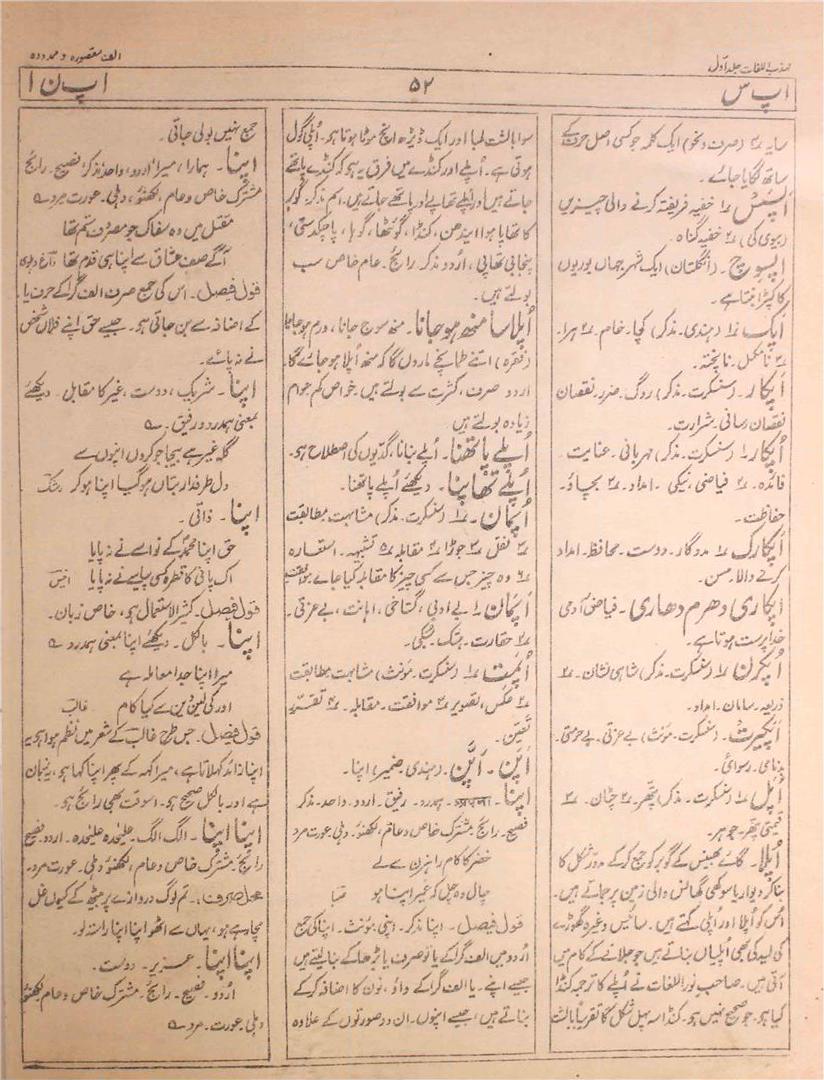 مہذب اللغات جلد اوّل
الف مقصورہ و ممدودہ
اپ س
۵۲
اپ ن ا
سایہ ۲؎ (صرف و نحو) ایک کلمہ جو کسی اصل حرف کے
ساتھ لگایا جائے۔
اَپسَس ۱؎ خفیہ فریفتہ کرنے والی چیزیں
(بیوی کی) ۲؎ خفیہ گناہ
اپسوِچ۔ (انگلستان) ایک شہر جہاں بوریوں
کا کپڑا بنتا ہے۔
اَپک ۱؎ (ہندی۔ مذکر) کچا۔ خام۔ ۲؎ ہرا۔
۳؎ نامکمل۔ ناپختہ۔
اَپکار۔ (سنسکرت۔ مذکر) روگ۔ ضرر۔ نقصان
نقصان رسانی۔ شرارت۔
اُپکار ۱؎ (سنسکرت۔ مذکر) مہربانی۔ عنایت۔
فائدہ۔ ۲؎ فیاضی، نیکی۔ امداد۔ ۳؎ بچاؤ۔
حفاظت۔
اُپکارک ۱؎ مددگار۔ دوست۔ محافظ۔ امداد
کرنے والا۔ محسن۔
اپکاری دھرم دھاری۔ فیاض آدمی
خدا پرست ہوتا ہے۔
اُپکرن ۱؎ (سنسکرت۔ مذکر) شاہی نشان۔ ۲؎
ذریعہ۔ سامان۔ امداد۔
اَپکیرت۔ (سنسکرت۔ مؤنث) بے عزتی۔ بے حرمتی۔
بدنامی۔ رسوائی۔
اُپل ۱؎ (سنسکرت۔ مذکر) پتھر۔ ۲؎ چٹان۔ ۳؎
قیمتی پتھر۔ جوہر۔
اُپلا۔ گائے بھینس کے گوبر کو جمع کر کے مدوّر شکل کا
بنا کر دیوار یا سوکھی گھاس والی زمین پر جماتے ہیں۔
اُس کو اُپلا اور اُپلی کہتے ہیں۔ سائیس وغیرہ گھوڑے
کی لید کی بھی اُپلیاں بناتے ہیں جو جلانے کے کام میں
آتی ہیں۔ صاحب نور اللغات نے اُپلے کا ترجمہ کنڈا
کیا ہو۔ جو صحیح نہیں ہو۔ کنڈا سہ پہل شکل کا تقریباً بالشت
سوا بالشت لمبا اور ایک ڈیڑھ انچ موٹا ہوتا ہو۔ اُپلی گول
ہوتی ہے۔ اُپلے اور کنڈے میں فرق یہ ہو کہ کنڈے پاتھے
جاتے ہیں اور اُپلے تھاپے اور پاتھے جاتے ہیں۔ اسم مذکر۔ گوبر
کا تھاپا ہوا، ایندھن، کنڈا، گوئٹھا، گوہا، پاچکدستی،
پنجابی تھاپی، اُردو مذکر رائج۔ عام خاص سب
بولتے ہیں۔
اُپلا سا منھ ہو جانا۔ منھ سوج جانا، ورم ہو جانا
(فقرہ) اتنے طمانچے ماروں گا کہ منھ اُپلا ہو جائے گا
اردو صرف، کثرت سے بولتے ہیں۔ خواص کم عوام
زیادہ بولتے ہیں
اُپلے پاتھنا۔ اُپلے بنانا، گدیوں کی اصطلاح ہو۔
اُپلے تھاپنا۔ دیکھئے اُپلے پاتھنا۔
اُپمان۔ ۱؎ (سنسکرت۔ مذکر) مشابہت مطابقت
۲؎ نقل ۳؎ جوڑا ۴؎ مقابلہ ۵؎ تشبیہ۔ استعارہ
۶؎ وہ چیز جس سے کسی چیز کا مقابلہ کیا جائے
اَپمان ۱؎ بے ادبی، گستاخی، اہانت، بے عزتی۔
۲؎ حقارت۔ ہتک۔ سبکی۔
اُپمِت ۱؎ (سنسکرت۔ مؤنث) مشابہت مطابقت
۲؎ عکس، تصویر ۳؎ موافقت۔ مقابلہ۔ ۴؎ تقرر،
تعین۔
اَپن۔ اَپَّن۔ (ہندی ضمیر) اپنا۔
اپنا۔ अपना۔ ہمدرد۔ رفیق۔ اردو۔ واحد۔ مذکر
فصیح۔ رائج مشترک خاص و عام، لکھنؤ۔ دہلی عورت مرد
خضر کا کام راہزن سے لے
چال وہ چل کہ غیر اپنا ہو صبا
قول فیصل۔ اپنا مذکر۔ اپنی مؤنث۔ اپنا کی جمع
اُردو میں الف گرا کے یائے معروف یا بڑھا کے بنا لیتے ہیں
جیسے اپنے۔ یا الف گرا کے واؤ، نون کا اضافہ کر کے
بناتے ہیں، جیسے اپنوں۔ ان دو صورتوں کے علاوہ
جمع نہیں بولی جاتی۔
اپنا۔ ہمارا، میرا، اُردو، واحد، مذکر، فصیح۔ رائج
مشترک خاص و عام، لکھنؤ، دہلی۔ عورت مرد ؎
مقتل میں وہ سفاک جو مصروف ستم تھا
آگے صف عشاق سے اپنا ہی قدم تھا داغ دہلوی
قول فیصل۔ اس کی جمع صرف الف گرا کے حرف یا
کے اضافہ سے بن جاتی ہو۔ جیسے حق اپنے فلاں شخص
نے نہ پائے۔
اپنا۔ شریک، دوست، غیر کا مقابل۔ دیکھئے
بمعنی ہمدرد و رفیق۔ ؎
گلۂ غیر ہے بیجا جو کروں اپنوں سے
دل طرفدار بتاں ہو گیا اپنا ہو کر رشک
اپنا۔ ذاتی۔
حق اپنا محمدؐ کے نواسے نے نہ پایا
اک پانی کا قطرہ کسی پیاسے نے نہ پایا انیسؔ
قول فیصل۔ کثیر الاستعمال ہو، خاص زبان۔
اپنا۔ بالکل۔ دیکھئے اپنا بمعنی ہمدرد ؎
میرا اپنا جدا معاملہ ہے
اور کی لین دین سے کیا کام غالبؔ
قول فیصل۔ جس طرح غالبؔ کے شعر میں نظم ہوا ہو یہ
اپنا زائد کہلاتا ہے، میرا کہہ کے پھر اپنا کہا ہو، یہ زبان
ہے اور بالکل صحیح ہو۔ اسوقت بھی رائج ہو۔
اپنا اپنا۔ الگ الگ۔ علیٰحدہ علیٰحدہ۔ اردو۔ فصیح
رائج۔ مشترک خاص و عام، لکھنؤ دہلی۔ عورت مرد۔
محل صرف،۔ تم لوگ دروازے پر بیٹھ کے کیوں غل
مچا رہے ہو، یہاں سے اٹھو اپنا اپنا راستہ لو۔
اپنا اپنا۔ عزیز۔ دوست۔
اردو۔ فصیح۔ رائج۔ مشترک خاص و عام لکھنؤ
دہلی۔ عورت۔ مرد ؎